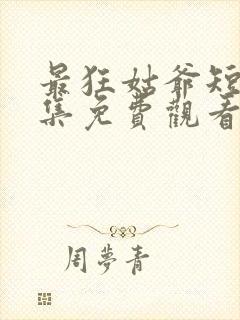 最狂姑爺短
集免費觀看
周夢青